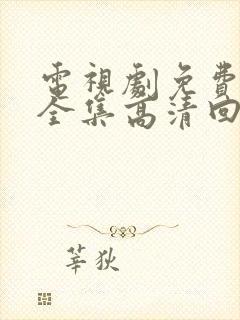 電視劇免費
全集高清回
莘狄